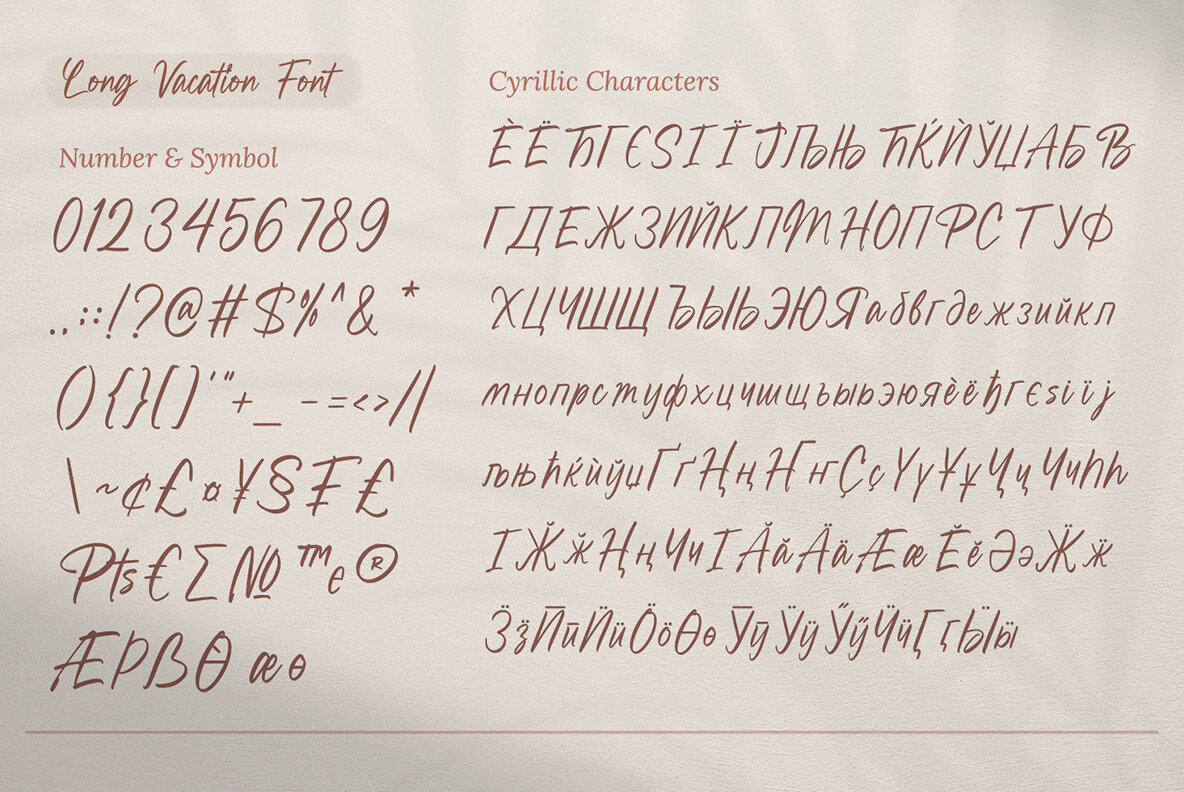 Long Vacation Font
Number & Symbol
0123456789
.,:;!?@#$%^&*
(){}[]'"+_-=<>/|
\~¢£¤¥§₣₤
₧€∑№™℮®
ÆÞßΘæɵ
Cyrillic Characters
ЀЁЂЃЄЅІЇЈЉЊЋЌЍЎЏАБВ
ГДЕЖЗИЙКЛМНОПРСТУФ
ХЦЧШЩЪЫЬЭЮЯабвгдежзийкл
мнопрстуфхцчшщъыьэюяѐёђгєѕіїј
љњћќѝўџҐґҢңҤҥҪҫҮүҰұҶҷҸҹҺһ
ӀӁӂӉӊӋӌӀӐӑӒӓӔӕӖӗӘәӜӝ
ӞӟӢӣӤӥӦӧӨөӮӯӰӱӲӳӴӵӶӷӸӹ